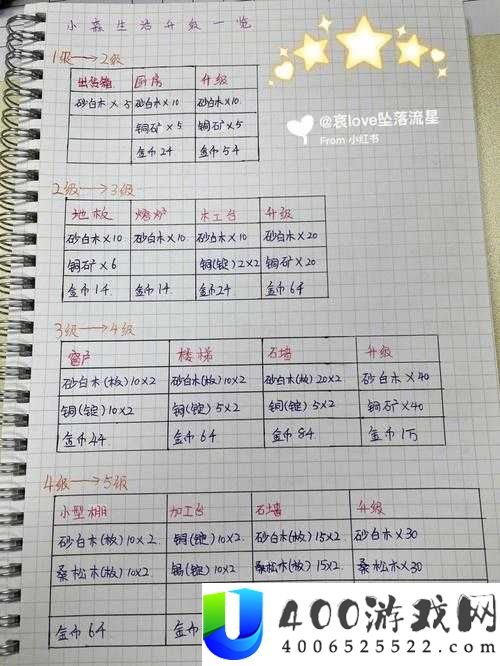 小森生活升级一览
1级→2级
出货箱 厨房 升级
砂白木×5 砂白木×10 砂白木×10
铜矿×5 铜矿×5
金币24 金币54
@哀love坠落流星
From 小红书
2级→3级
地板 烤炉 木工台 升级
砂白木×10 砂白木×10 砂白木×10 砂白木×20
铜矿×6 铜(锭)2×2 铜矿×20
金币14 金币14 金币24 金币64
3级→4级
窗户 楼梯 石墙 升级
砂白木(板)10×2 砂白木(板)10×2 砂白木(板)20×2 砂白木×40
铜(锭)10×2 铜(锭)5×2 铜(锭)5×2 铜矿×40
金币44 金币64 金币84 金币1万
4级→5级
小型棚 加工台 石墙 升级
砂白木(板)10×2 铜(锭)10×2 砂白木(板)15×2 砂白木×30
桑松木(板)10×2 锡(锭)10×2 桑松木(板)15×2 桑松木×30
金币64 金币
400游戏网
4006525522.com